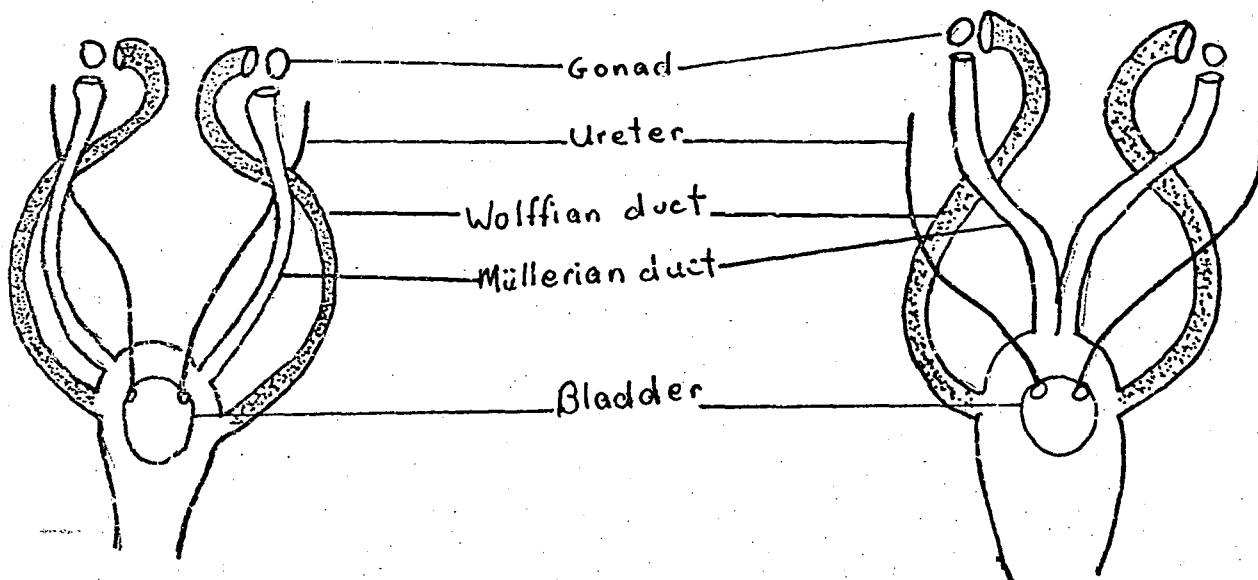 Gonad
Ureter
Wolffian duct
Müllerian duct
Bladder